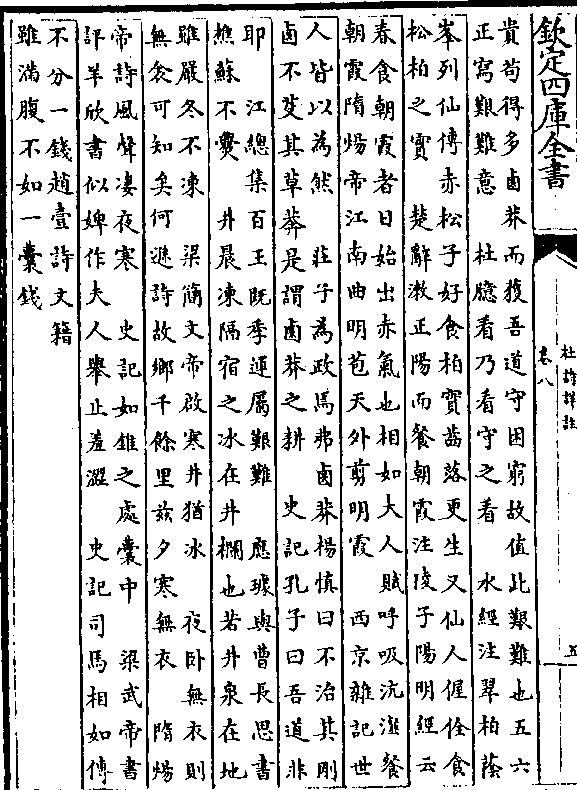 欽定四庫全書
杜詩詳註
卷八
五
貴苟得多鹵莽而獲吾道守困窮故值此艱難也五六
正寫艱難意　杜臆看乃看守之看　水經注翠柏蔭
峯列仙傳赤松子好食柏實齒落更生又仙人偓佺食
松柏之實　楚辭漱正陽而餐朝霞注陵子陽明經云
春食朝霞者日始出赤氣也相如大人賦呼吸沆瀣餐
朝霞隋煬帝江南曲明苞天外剪明霞　西京雜記世
人皆以為然　莊子為政焉弗鹵莽楊慎曰不治其剛
鹵不芟其草莽是謂鹵莽之耕　史記孔子曰吾道非
耶　江總集百王既季運屬艱難　應璩與曹長思書
樵蘇不爨　井晨凍隔宿之冰在井欄也若井泉在地
雖嚴冬不凍　梁簡文帝啟寒井猶冰　夜卧無衣則
無衾可知矣何遜詩故鄉千餘里兹夕寒無衣　隋煬
帝詩風聲凄夜寒　史記如錐之處囊中　梁武帝書
評羊欣書似婢作夫人舉止羞澀　史記司馬相如傳
不分一錢趙壹詩文籍
雖滿腹不如一囊錢